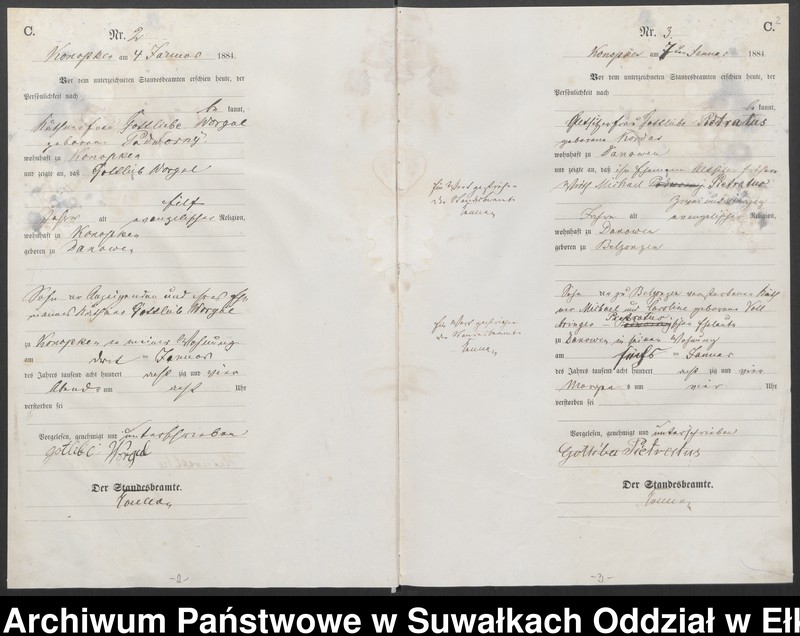 C.
Nr. 2
Konopken am 4 Januar 1884.
Vor dem unterzeichneten Standesbeamten erschien heute, der
Persönlichkeit nach
be kannt,
Käthnerfrau Gottliebe Worgal
geborene Podworny
wohnhaft zu Konopken
und zeigte an, daß Gottlieb Worgal
elf
Jahre alt evangelischer Religion,
wohnhaft zu Konopken
geboren zu Danowen
Sohn der Anzeigenden und ihres Ehe
mannes Käthner Gottlieb Worgal
zu Konopken in seiner Wohnung
am drei Januar
des Jahres tausend acht hundert acht zig und vier
Abends um acht Uhr
verstorben sei
Vorgelesen, genehmigt und unterschrieben
Gotlibe Worgal
Der Standesbeamte.
-2-
C. 2
Nr. 3.
Konopken am 7ten Januar 1884
Vor dem unterzeichneten Standesbeamten erschien heute, der
Persönlichkeit nach
be kannt,
Altsitzerfrau Gottliebe Pietratus
geborene
wohnhaft zu Danowen
und zeigte an, daß ihr Ehemann Altsitzer früherer
Wirth Michael Podworny Pietratus
Jahre alt evangelischer Religion,
wohnhaft zu Danowen
geboren zu Belzonzen
Sohn der zu Belzonzen verstorbenen Käth
ner Michael und Caroline geborene
Pietratus
Podworny schen Eheleute
zu Danowen in seiner Wohnung
am fünf Januar
des Jahres tausend acht hundert acht zig und vier
Morgen s um vier Uhr
verstorben sei
Vorgelesen, genehmigt und unterschrieben
Gottliba Pietrattus
Der Standesbeamte.
Ein Wort gestrichen
der Standesbeamte
Ein Wort gestrichen
der Standesbeamte
-3-
Archiwum Państwowe w Suwałkach Oddział w Ełk